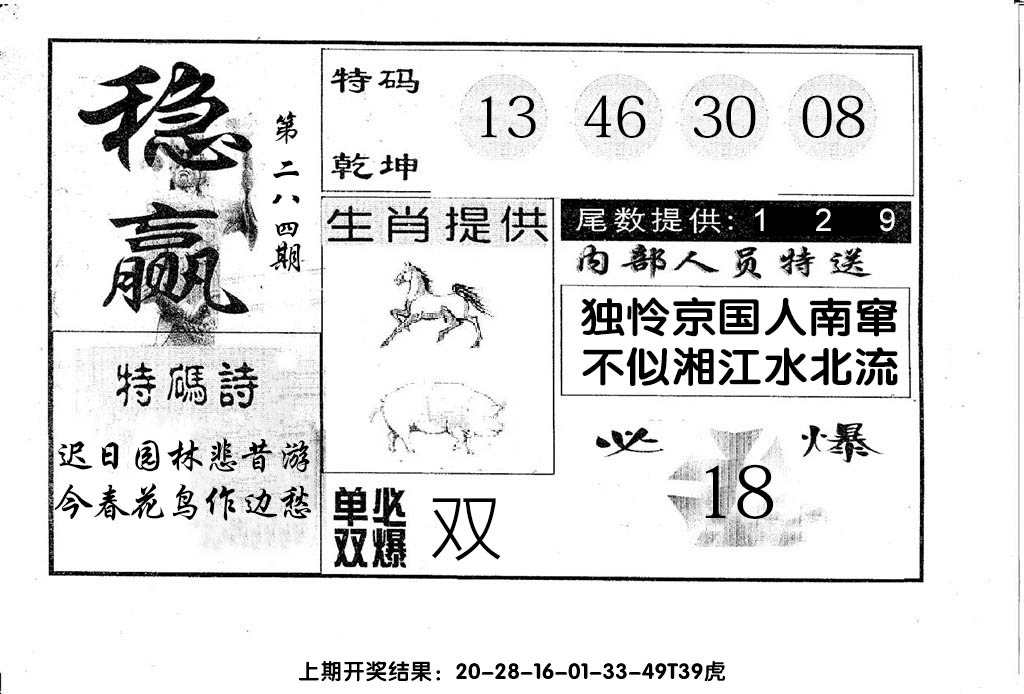 稳赢
第二八四期
特码
乾坤
13 46 30 08
生肖提供
尾数提供: 1 2 9
内部人员特送
独怜京国人南窜
不似湘江水北流
特碼詩
迟日园林悲昔游
今春花鸟作边愁
必爆
18
单双必爆
双
上期开奖结果：20-28-16-01-33-49T39虎